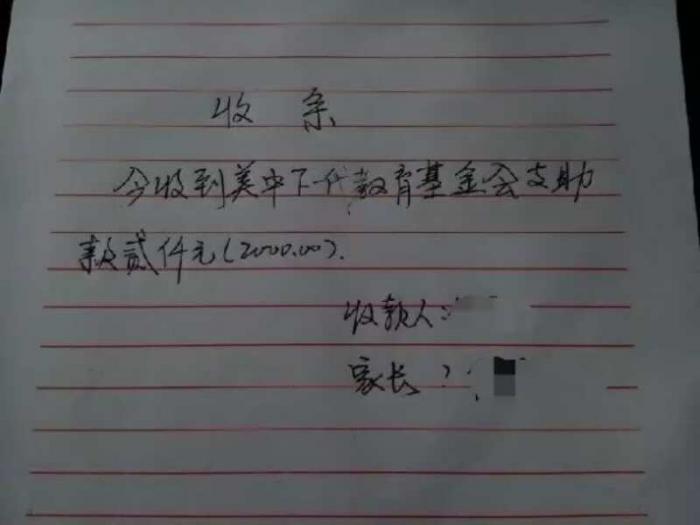 收条
今收到美中下代教育基金会支助
款贰仟元(2000.00).
收款人:
家长: